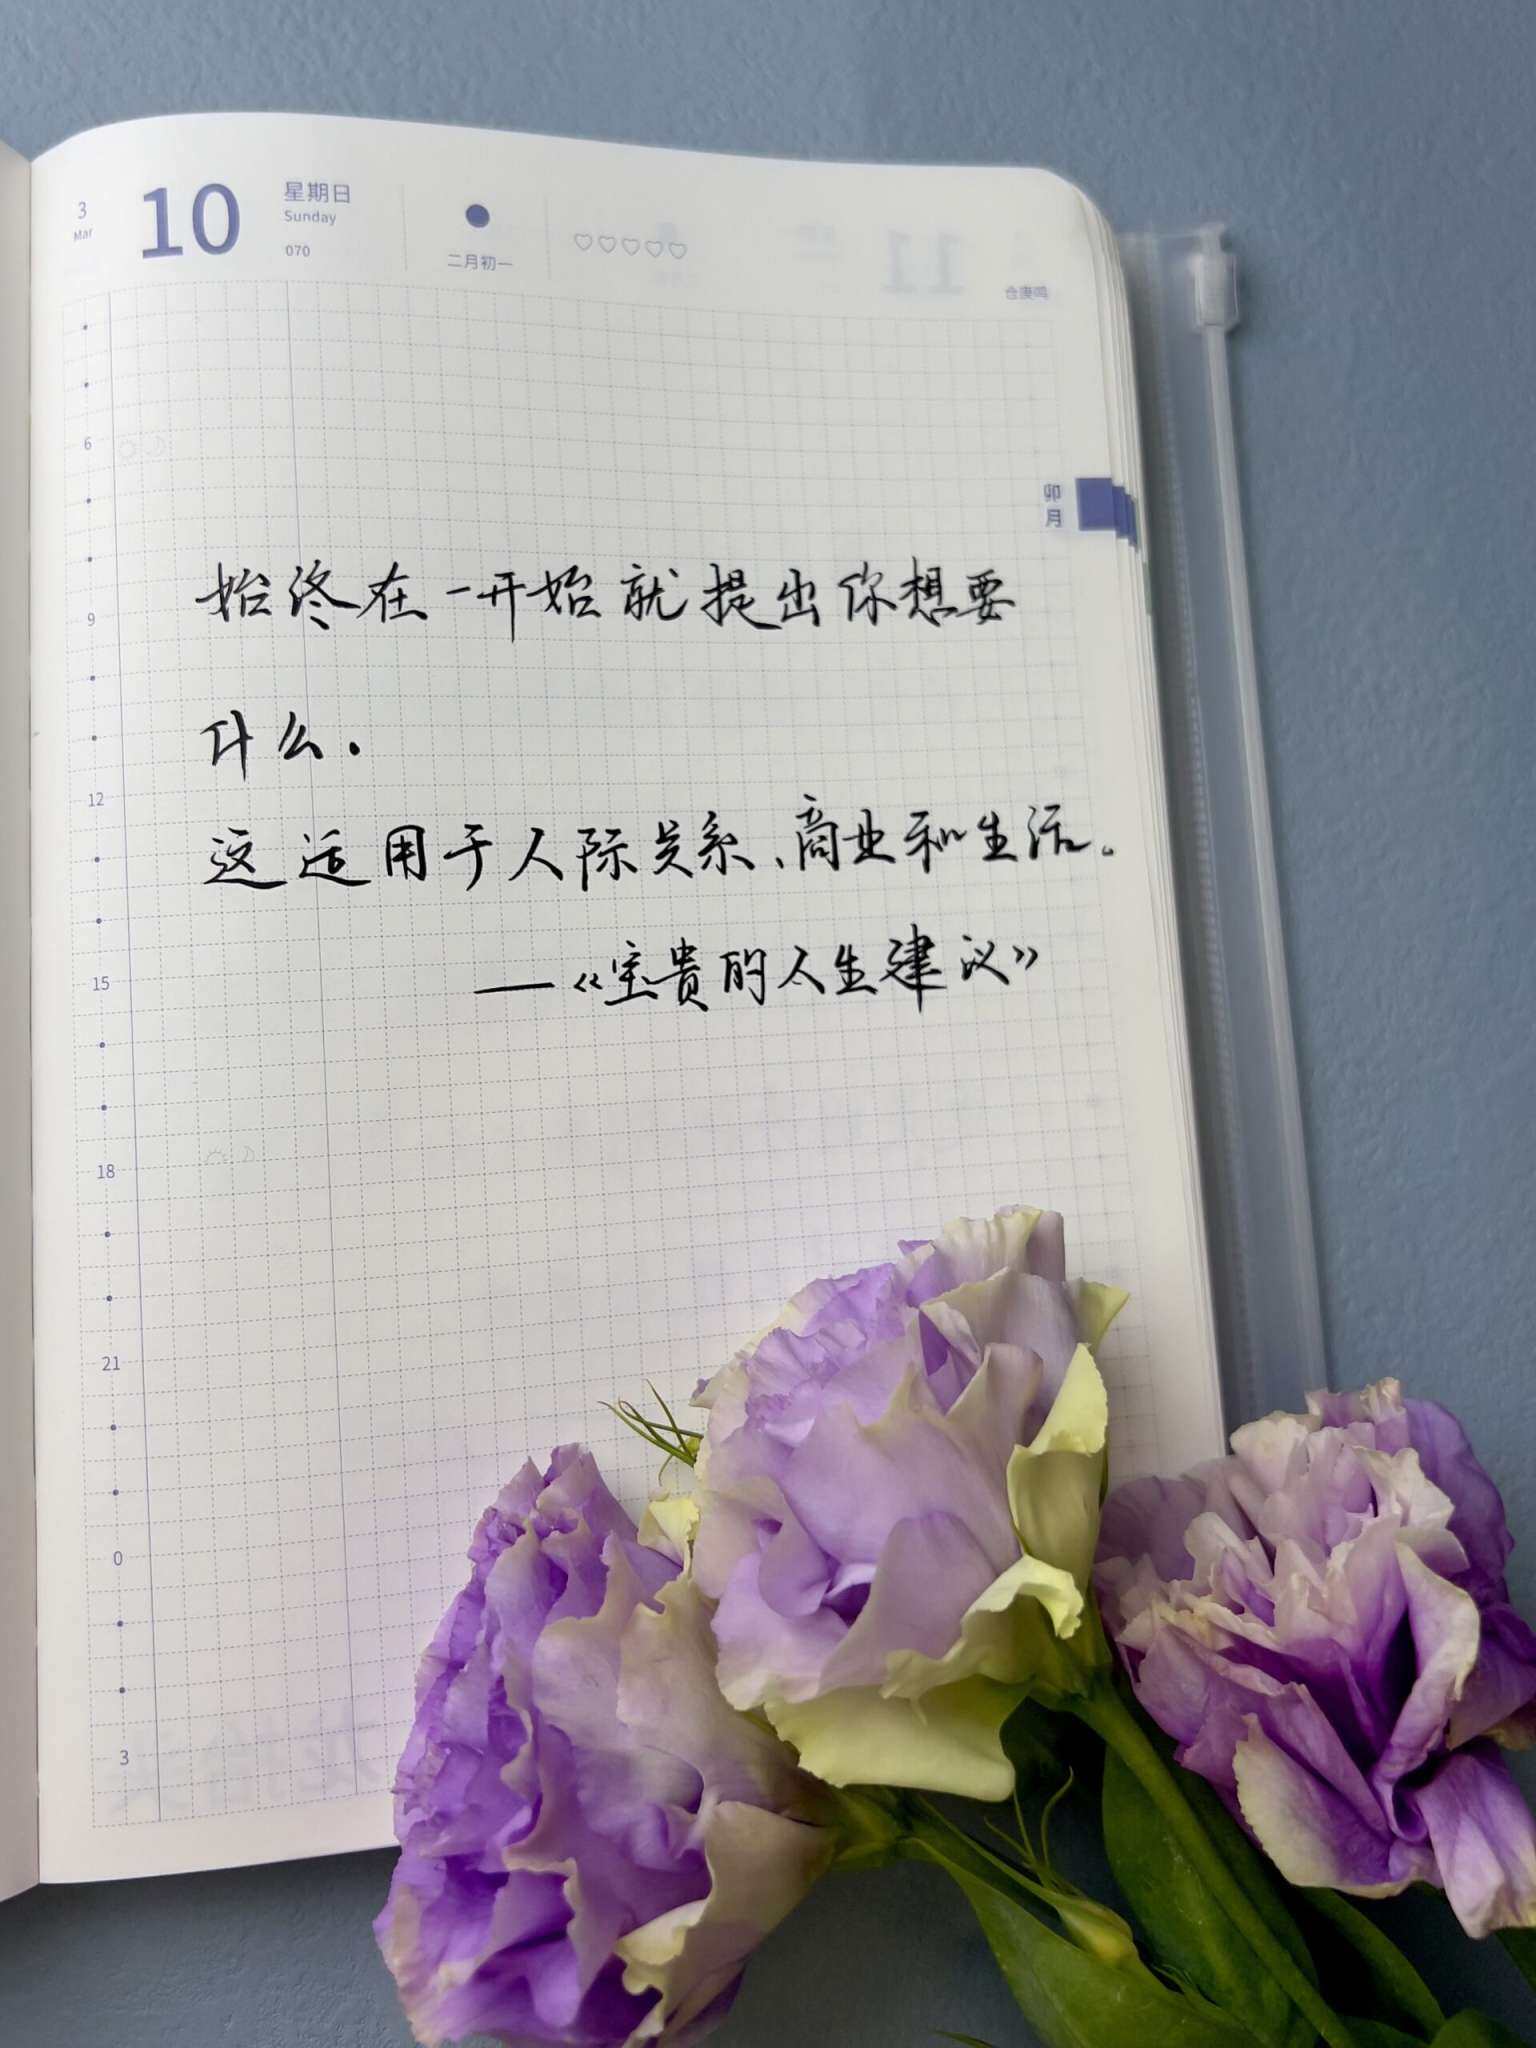 3
Mar
10
星期日
Sunday
070
二月初一
仓庚鸣
6
卯月
始终在一开始就提出你想要
9
什么.
12
这适用于人际关系、商业和生活。
——《宝贵的人生建议》
15
18
21
0
3